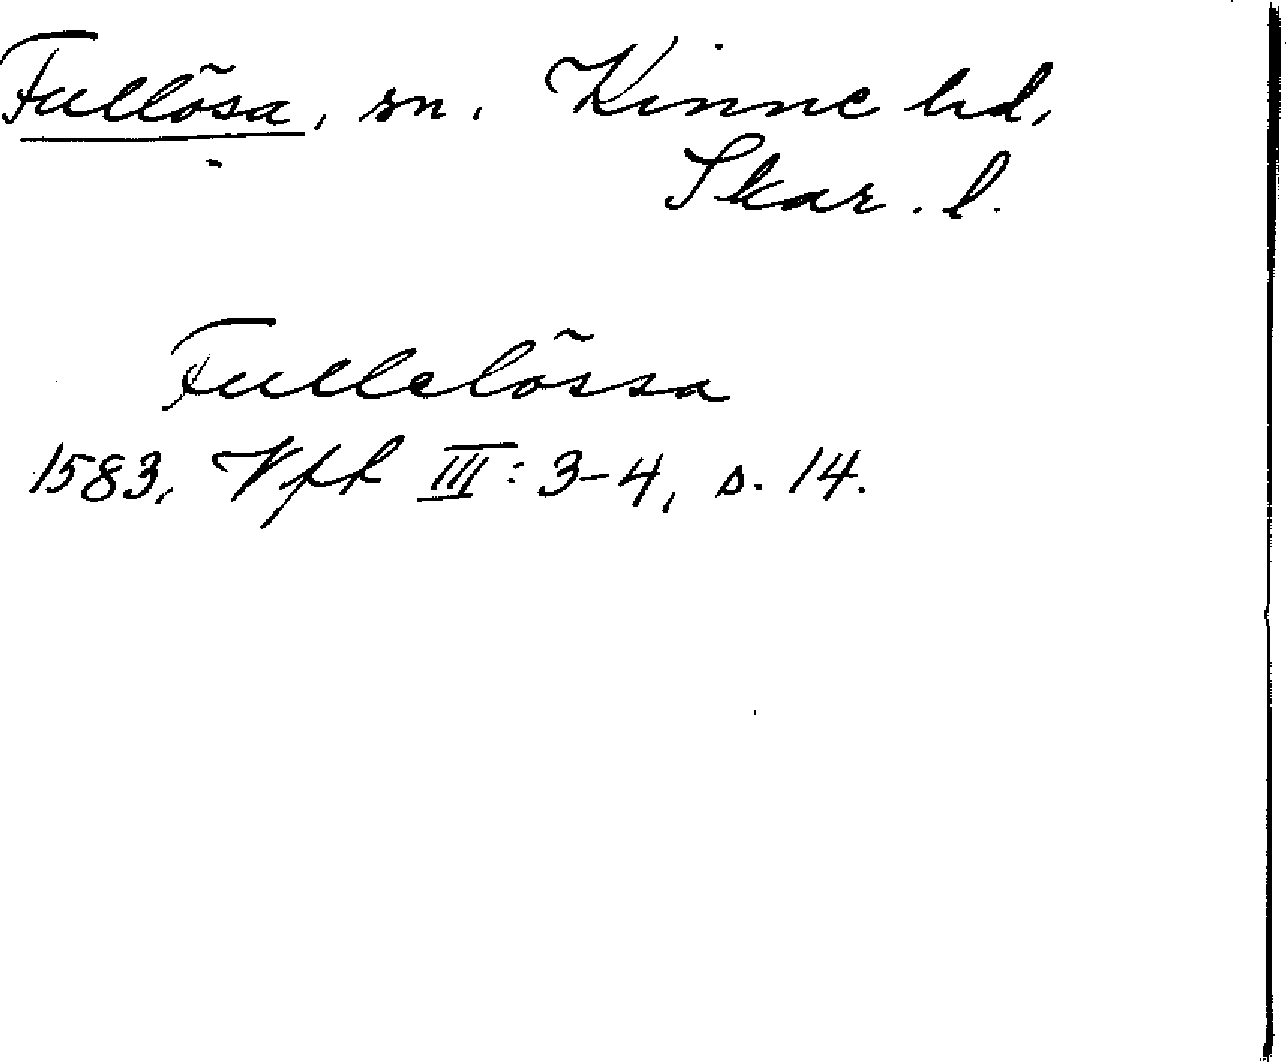 Fullösa, sn. Kinne hd,
Skar. l.
Fullelössa
1583, Vfk III: 3-4, s. 14.